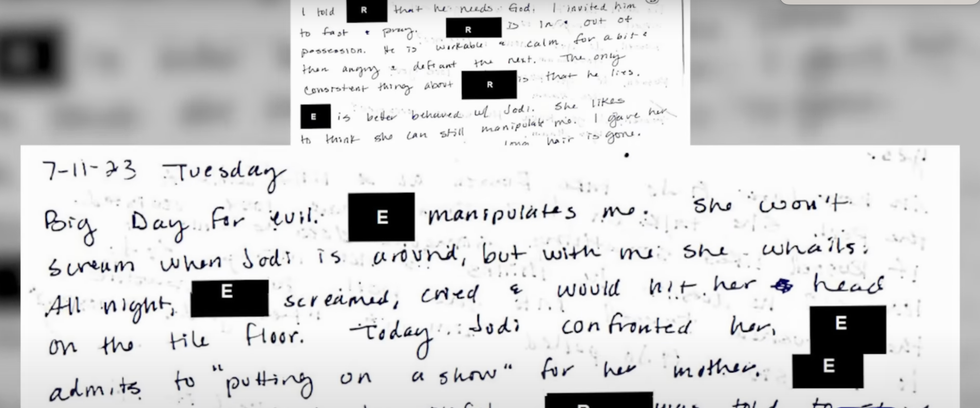 I told R that he needs God. I invited him
to fast & pray. R is in & out of
possession. He is workable & calm for a bit &
then angry & defiant the next. The only
consistent thing about R is that he lies.
E is better behaved w/ Jodi. She likes
to think she can still manipulate me. I gave her
hair is gone.
7-11-23 Tuesday
Big Day for evil. E manipulates me. She won't
scream when Jodi is around, but with me she whails.
All night, E screamed, cried & would hit her head
on the tile floor. Today Jodi confronted her. E
admits to "putting on a show" for her mother. E
R was told to stand